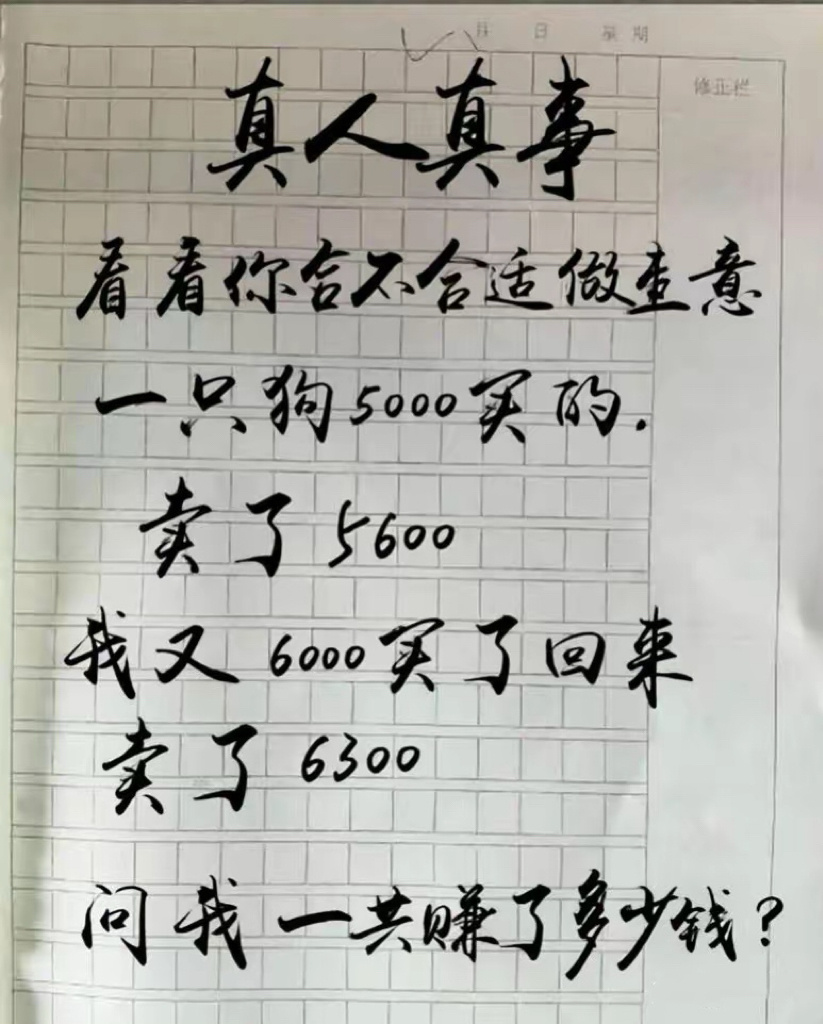 月 日 星期
修正栏
真人真事
看看你合不合适做生意
一只狗5000买的.
卖了5600
我又6000买了回来
卖了6300
问我一共赚了多少钱?